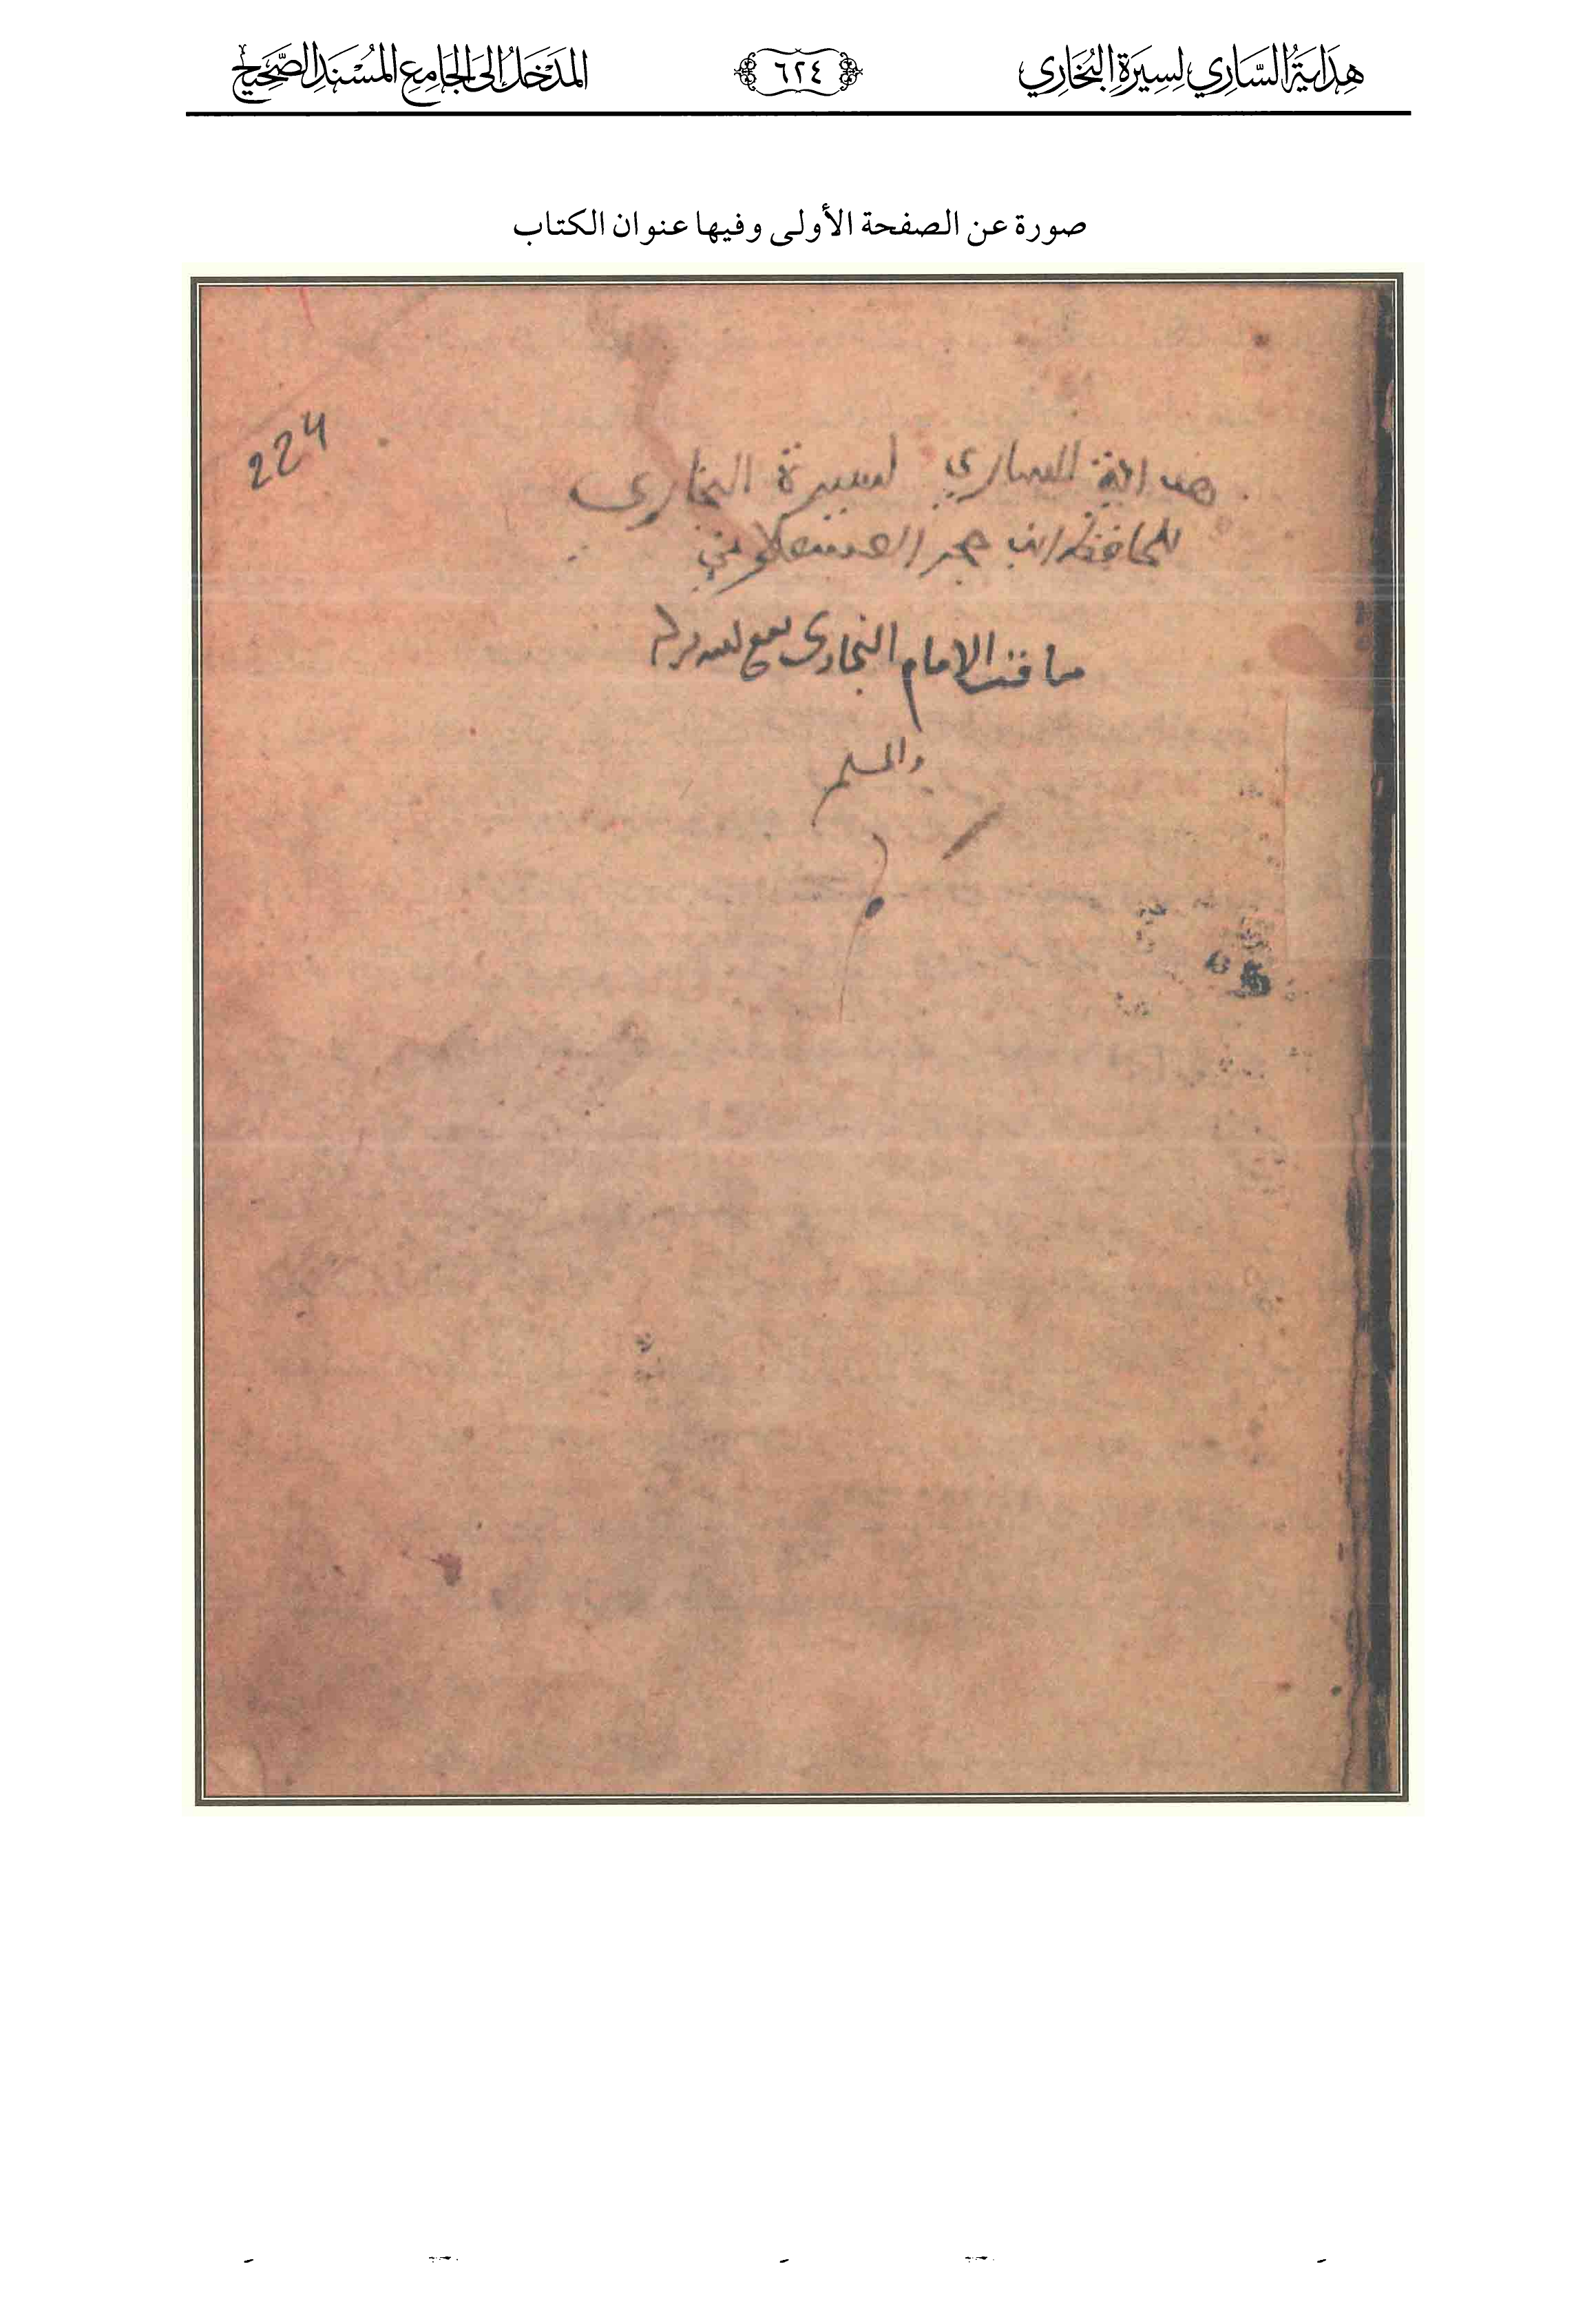 هِدَايَةُ السَّارِي لِسِيرَةِ البُخَارِي
٦٢٤
المَدْخَلُ إِلَى الجَامِعِ المُسْنَدِ الصَّحِيحِ
صورة عن الصفحة الأولى وفيها عنوان الكتاب
224
هداية الساري لسيرة البخاري
للحافظ ابن حجر العسقلاني
مناقب الامام البخاري
والمسلم